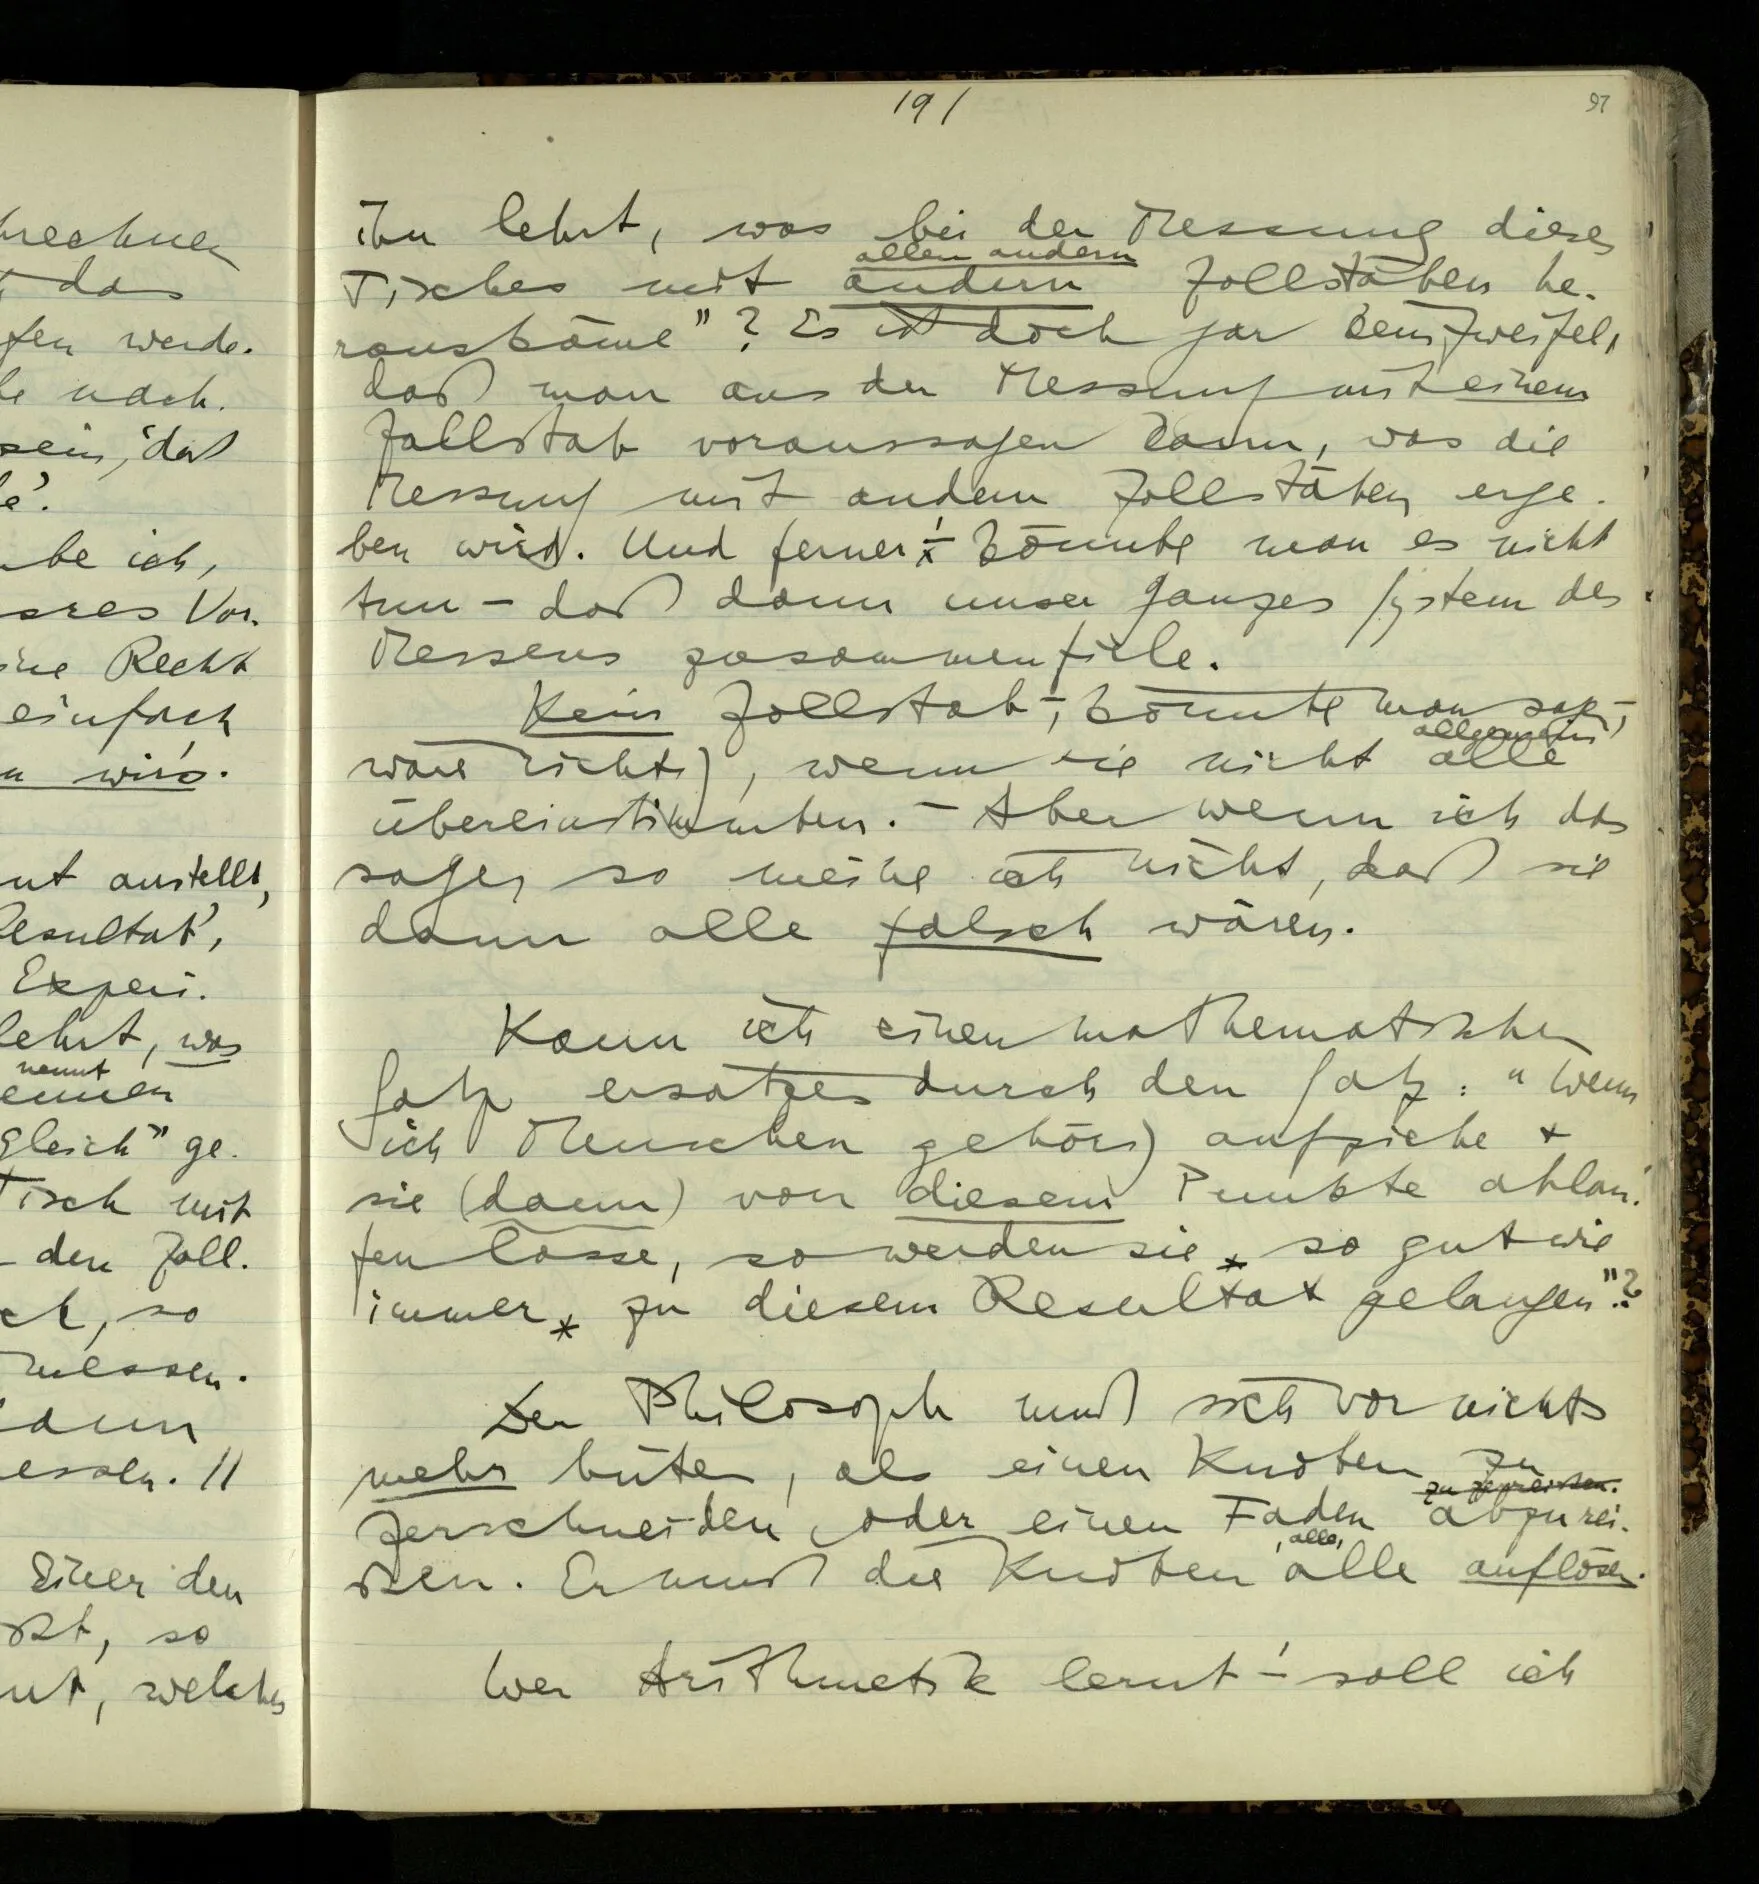 191
97
ihn lehrt, was bei der Messung dieses
allen andern
Tisches mit andern Zollstäben he-
rauskäme"? Es ist doch gar kein Zweifel,
daß man aus der Messung mit einem
Zollstab voraussagen kann, was die
Messung mit andern Zollstäben erge-
ben wird. Und ferner – könnte man es nicht
tun – daß dann unser ganzes System des
Messens zusammenfiele.
Kein Zollstab –, könnte man sag-,
allgemein
wäre richtig, wenn sie nicht alle
übereinstimmten. – Aber wenn ich das
sage, so meine ich nicht, daß sie
dann alle falsch wären.
Kann ich einen mathematischen
Satz ersetzen durch den Satz: "Wenn
ich Menschen gehörig aufziehe +
sie (dann) von diesem Punkte ablau-
fen lasse, so werden sie * so gut wie
immer * zu diesem Resultat gelangen"?
Der Philosoph muß sich vor nichts
mehr hüten, als einen Knoten zu
zu zerreissen.
zerschneiden, oder einen Faden abzurei-
alle,
ßen. Er muß die Knoten alle auflösen.
Wer Arithmetik lernt – soll ich
brechnen
das
fen werde.
nach.
sein, daß
be ich,
sres Vor-
ine Recht
einfach
wird.
nt anstellt,
Resultat',
Experi-
lehrt, was
nennt
ennen
gleich" ge-
Tisch mit
– den Zoll-
so
messen.
dann
essen. //
Einer den
so
nt, welches